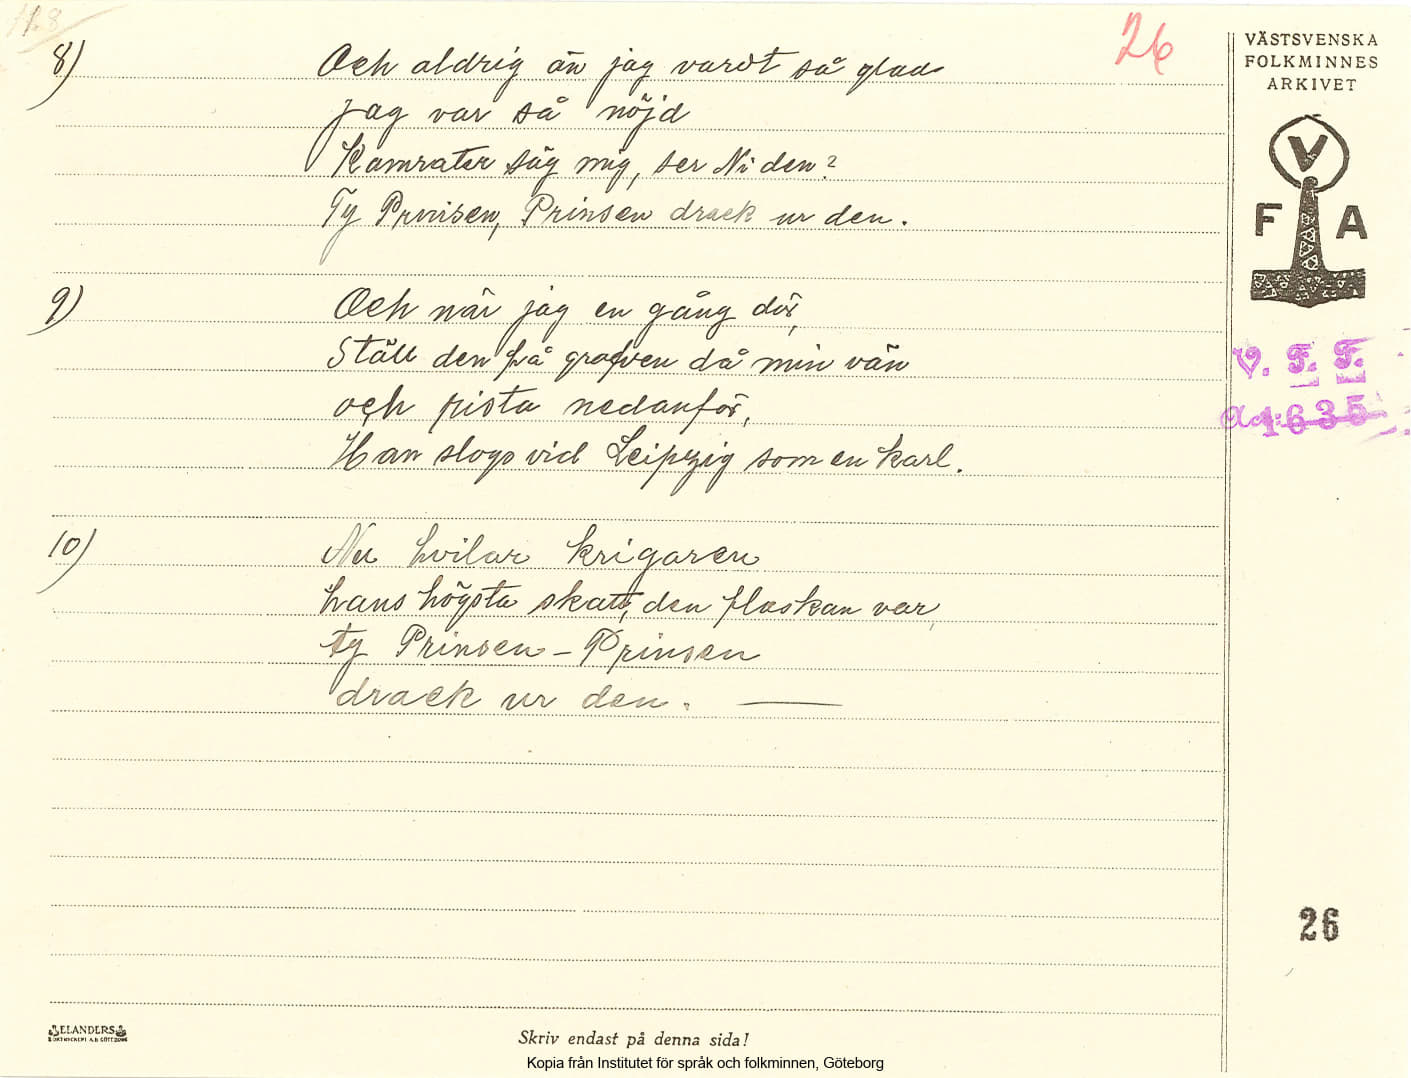 26
VÄSTSVENSKA
FOLKMINNES
ARKIVET
V
F A
V. F. F.
1635
8) Och aldrig än jag vardt så glad
jag var så nöjd
Kamrater säg mig, ser Ni den?
Ty Prinsen, Prinsen drack ur den.
9) Och när jag en gång dör,
Ställ den på grafven då min vän
och rista nedanför,
Han slogs vid Leipzig som en karl.
10) Nu hvilar krigaren
hans högsta skatt, den flaskan var,
ty Prinsen - Prinsen
drack ur den. —
26
ELANDERS
Skriv endast på denna sida!
Kopia från Institutet för språk och folkminnen, Göteborg